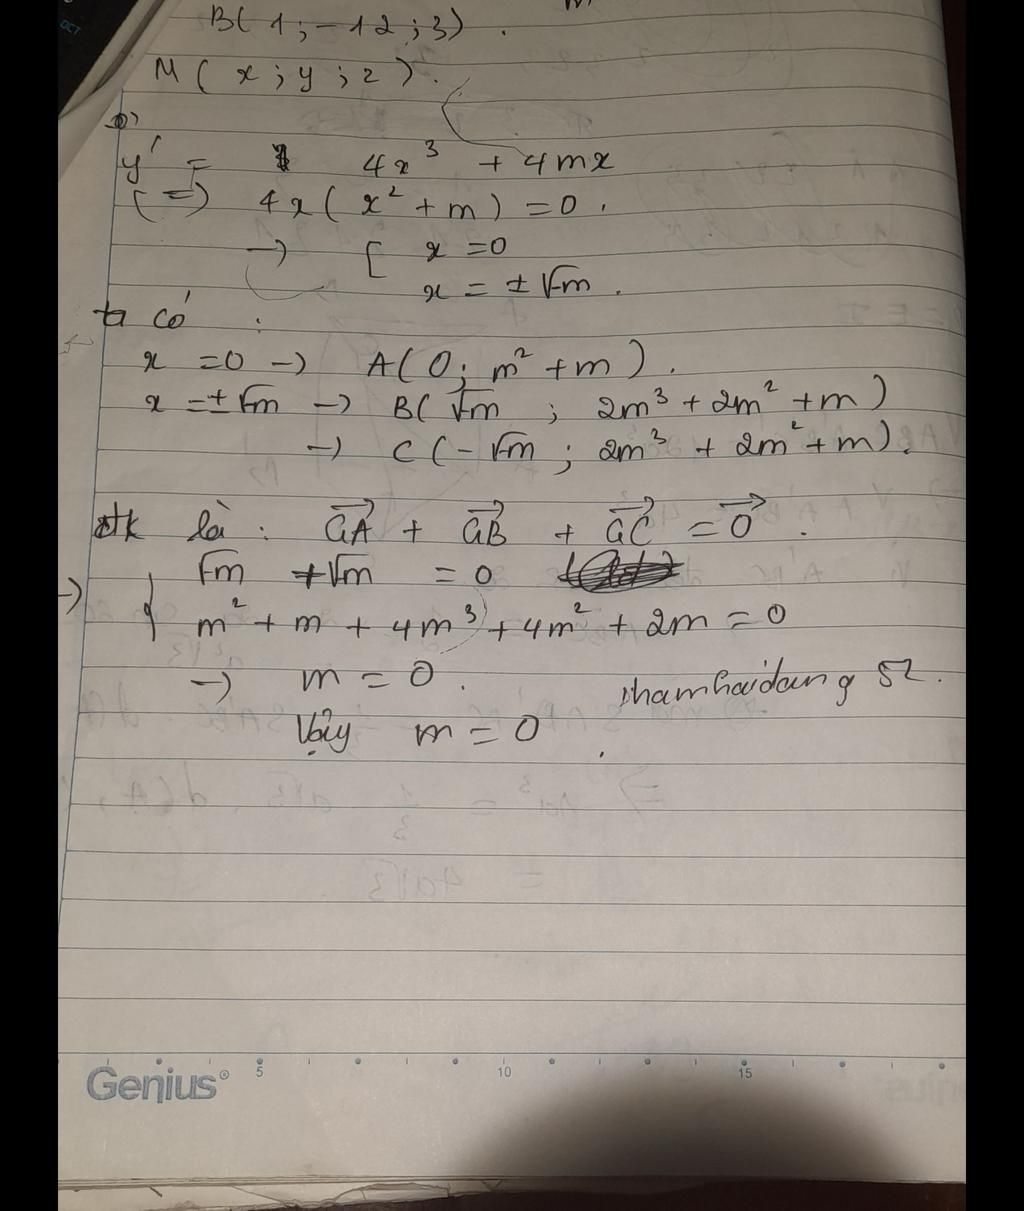 B( 1 ; -12 ; 3) .
M ( x ; y ; z ) .
y' = 4x³ + 4mx
(=) 4x( x² + m ) = 0 .
→ [ x = 0
x = ± √-m .
ta có :
x = 0 → A( 0 ; m² + m ) .
x = ± √-m → B( √-m ; 2m³ + 2m² + m )
→ C ( - √-m ; 2m³ + 2m² + m ) .
đk là : GA + GB + GC = 0 .
→ { √-m + √-m = 0
m² + m + 4m³ + 4m² + 2m = 0
→ m = 0 .
phamhaidang 52 .
Vậy m = 0 .
Genius®
5 10 15